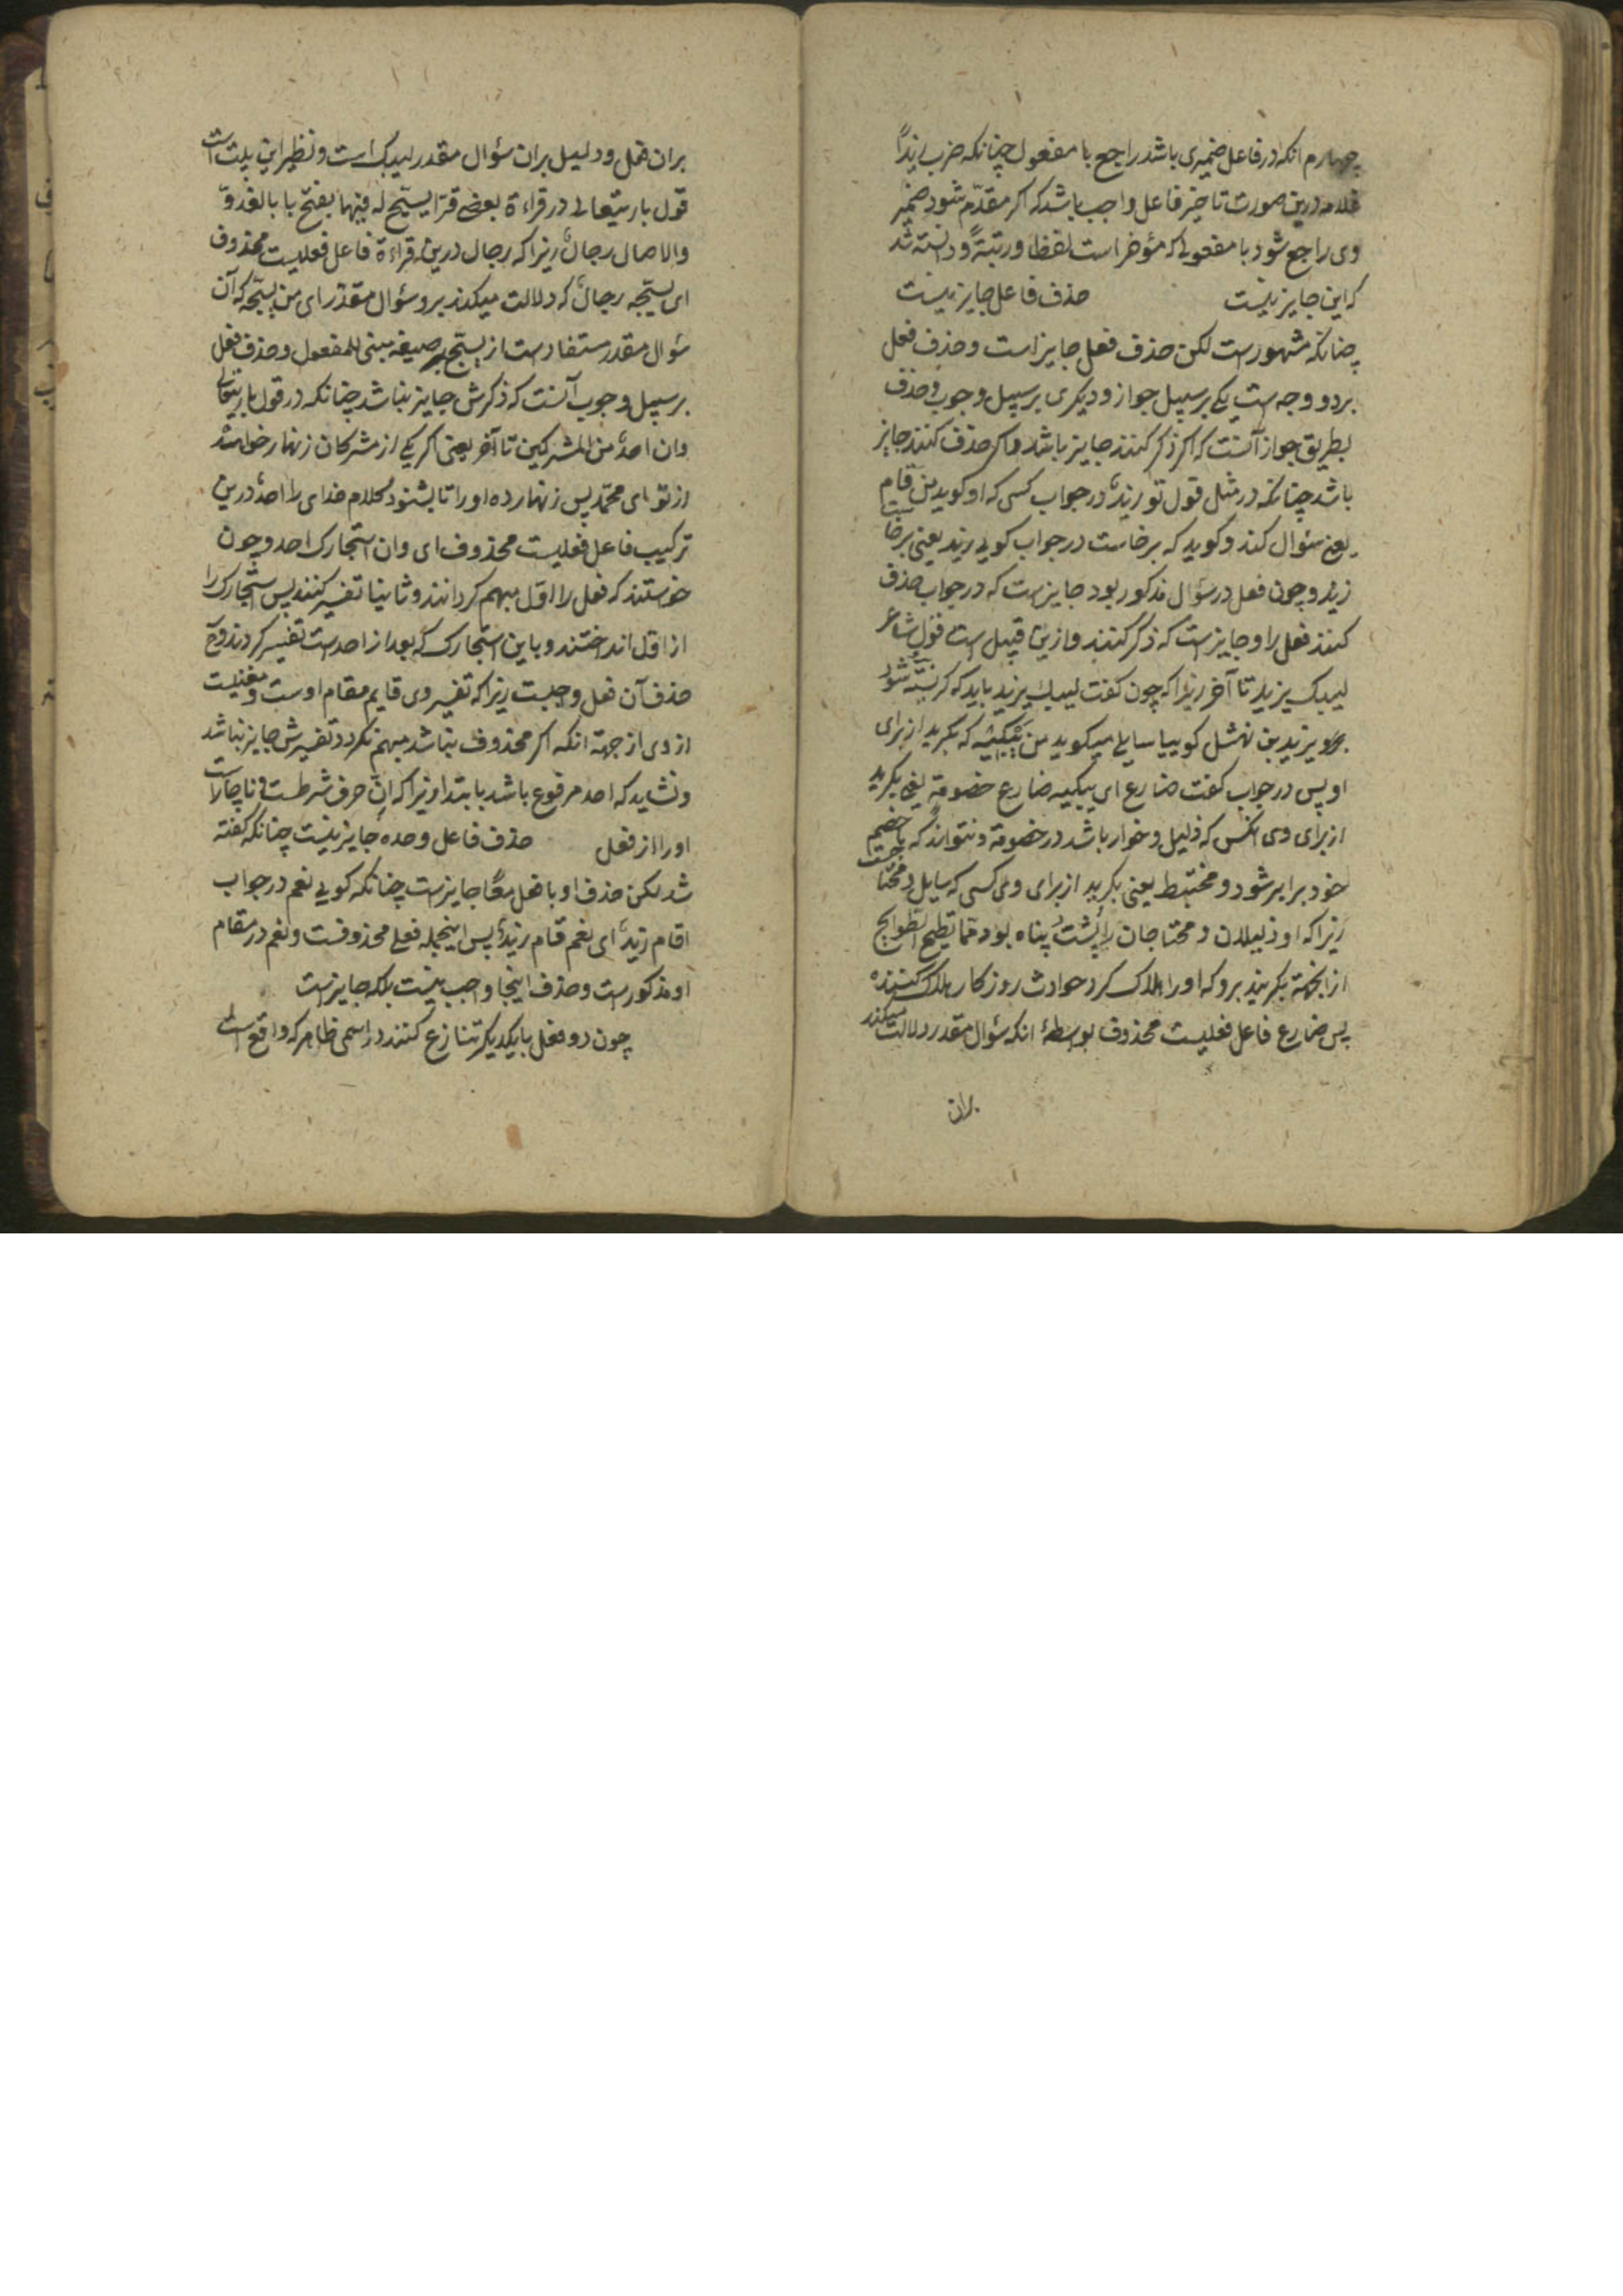 چهارم انکه در فاعل ضمیری باشد راجع با مفعول چنانکه ضرب زیداً
غلامه درین صورت تاخیر فاعل واجب باشد که اگر مقدّم شود ضمیر
وی راجع شود با مفعولی که مؤخر است لفظا و رتبةً و دانسته شد
که این جایز نیست حذف فاعل جایز نیست
چنانکه مشهورست لکن حذف فعل جایز است و حذف فعل
بر دو وجه است یکی بر سبیل جواز و دیکری بر سبیل وجوب و حذف
بطریق جواز آنست که اکر ذکر کنند جایز باشد و اکر حذف کنند جایز
باشد چنانکه در مثل قول تو زیدٌ در جواب کسی که او کوید من قام
یعنی سئوال کند و کوید که برخاست در جواب کویی زید یعنی برخاست
زید و چون فعل در سؤال مذکور بود جایزست که در جواب حذف
کنند فعل را و جایزست که ذکر کنند و ازین قبیل است قول شاعر
لیبک یزید تا آخر زیرا که چون کفت لیبک یزید باید که کریسته شود
بر یزید بن نهشل کوییا سایلی میکوید من یبکیه که بکرید از برای
او پس در جواب کفت ضارع ای یبکیه ضارع خصومةٍ یعنی بکرید
از برای وی انکس که ذلیل و خوار باشد در خصومة و نتواند که با خصم
خود برابر شود و مختبط یعنی بکرید از برای وی کسی که سایل و محتاجست
زیرا که او ذلیلان و محتاجان را پشت و پناه بود مما تطیح الطوایح
از انجهة بکریند برو که او را هلاک کرد حوادث روزکار هلاک کننده
پس ضارع فاعل فعلیست محذوف بواسطهٔ انکه سئوال مقدر دلالت میکند
بران
بران فعل و دلیل بران سئوال مقدر لیبک است و نظیر این بیت است
قول باریتعالی در قراءة بعضی قرّا یسبّح له فیها بفتح با بالغدوّ
والاصال رجالٌ زیرا که رجال درین قراءة فاعل فعلیست محذوف
ای یسبّحه رجالٌ که دلالت میکند برو سئوال مقدر ای من یسبّحه که آن
سئوال مقدر مستفادست از یسبّح بر صیغه مبنی للمفعول و حذف فعل
بر سبیل وجوب آنست که ذکرش جایز نباشد چنانکه در قول باریتعالی
وان احدٌ من المشرکین تا آخر یعنی اکر یکی از مشرکان زنهار خواهد
از تو ای محمّد پس زنهار ده او را تا بشنود کلام خدای را احدٌ درین
ترکیب فاعل فعلیست محذوف ای وان استجارک احد و چون
خواستند که فعل را اوّل مبهم کردانند و ثانیا تفسیر کنند پس استجارک را
از اوّل انداختند و باین استجارک که بعد از احد است تفسیر کردند و
حذف آن فعل واجبست زیرا که تفسیر وی قایم مقام اوست و مغنیست
از وی از جهة انکه اکر محذوف نباشد مبهم نکردد و تفسیرش جایز نباشد
و نشاید که احد مرفوع باشد بابتدا زیرا که انْ حرف شرطست و ناچارست
او را از فعل حذف فاعل وحده جایز نیست چنانکه کفته
شد لکن حذف او با فعل معًا جایزست چنانکه کویی نعم در جواب
اقام زیدٌ ای نعم قام زیدٌ پس اینجمله فعلی محذوفست و نعم در مقام
او مذکورست و حذف اینجا واجب نیست بلکه جایزست
چون دو فعل با یکدیکر تنازع کنند در اسمی ظاهر که واقع است